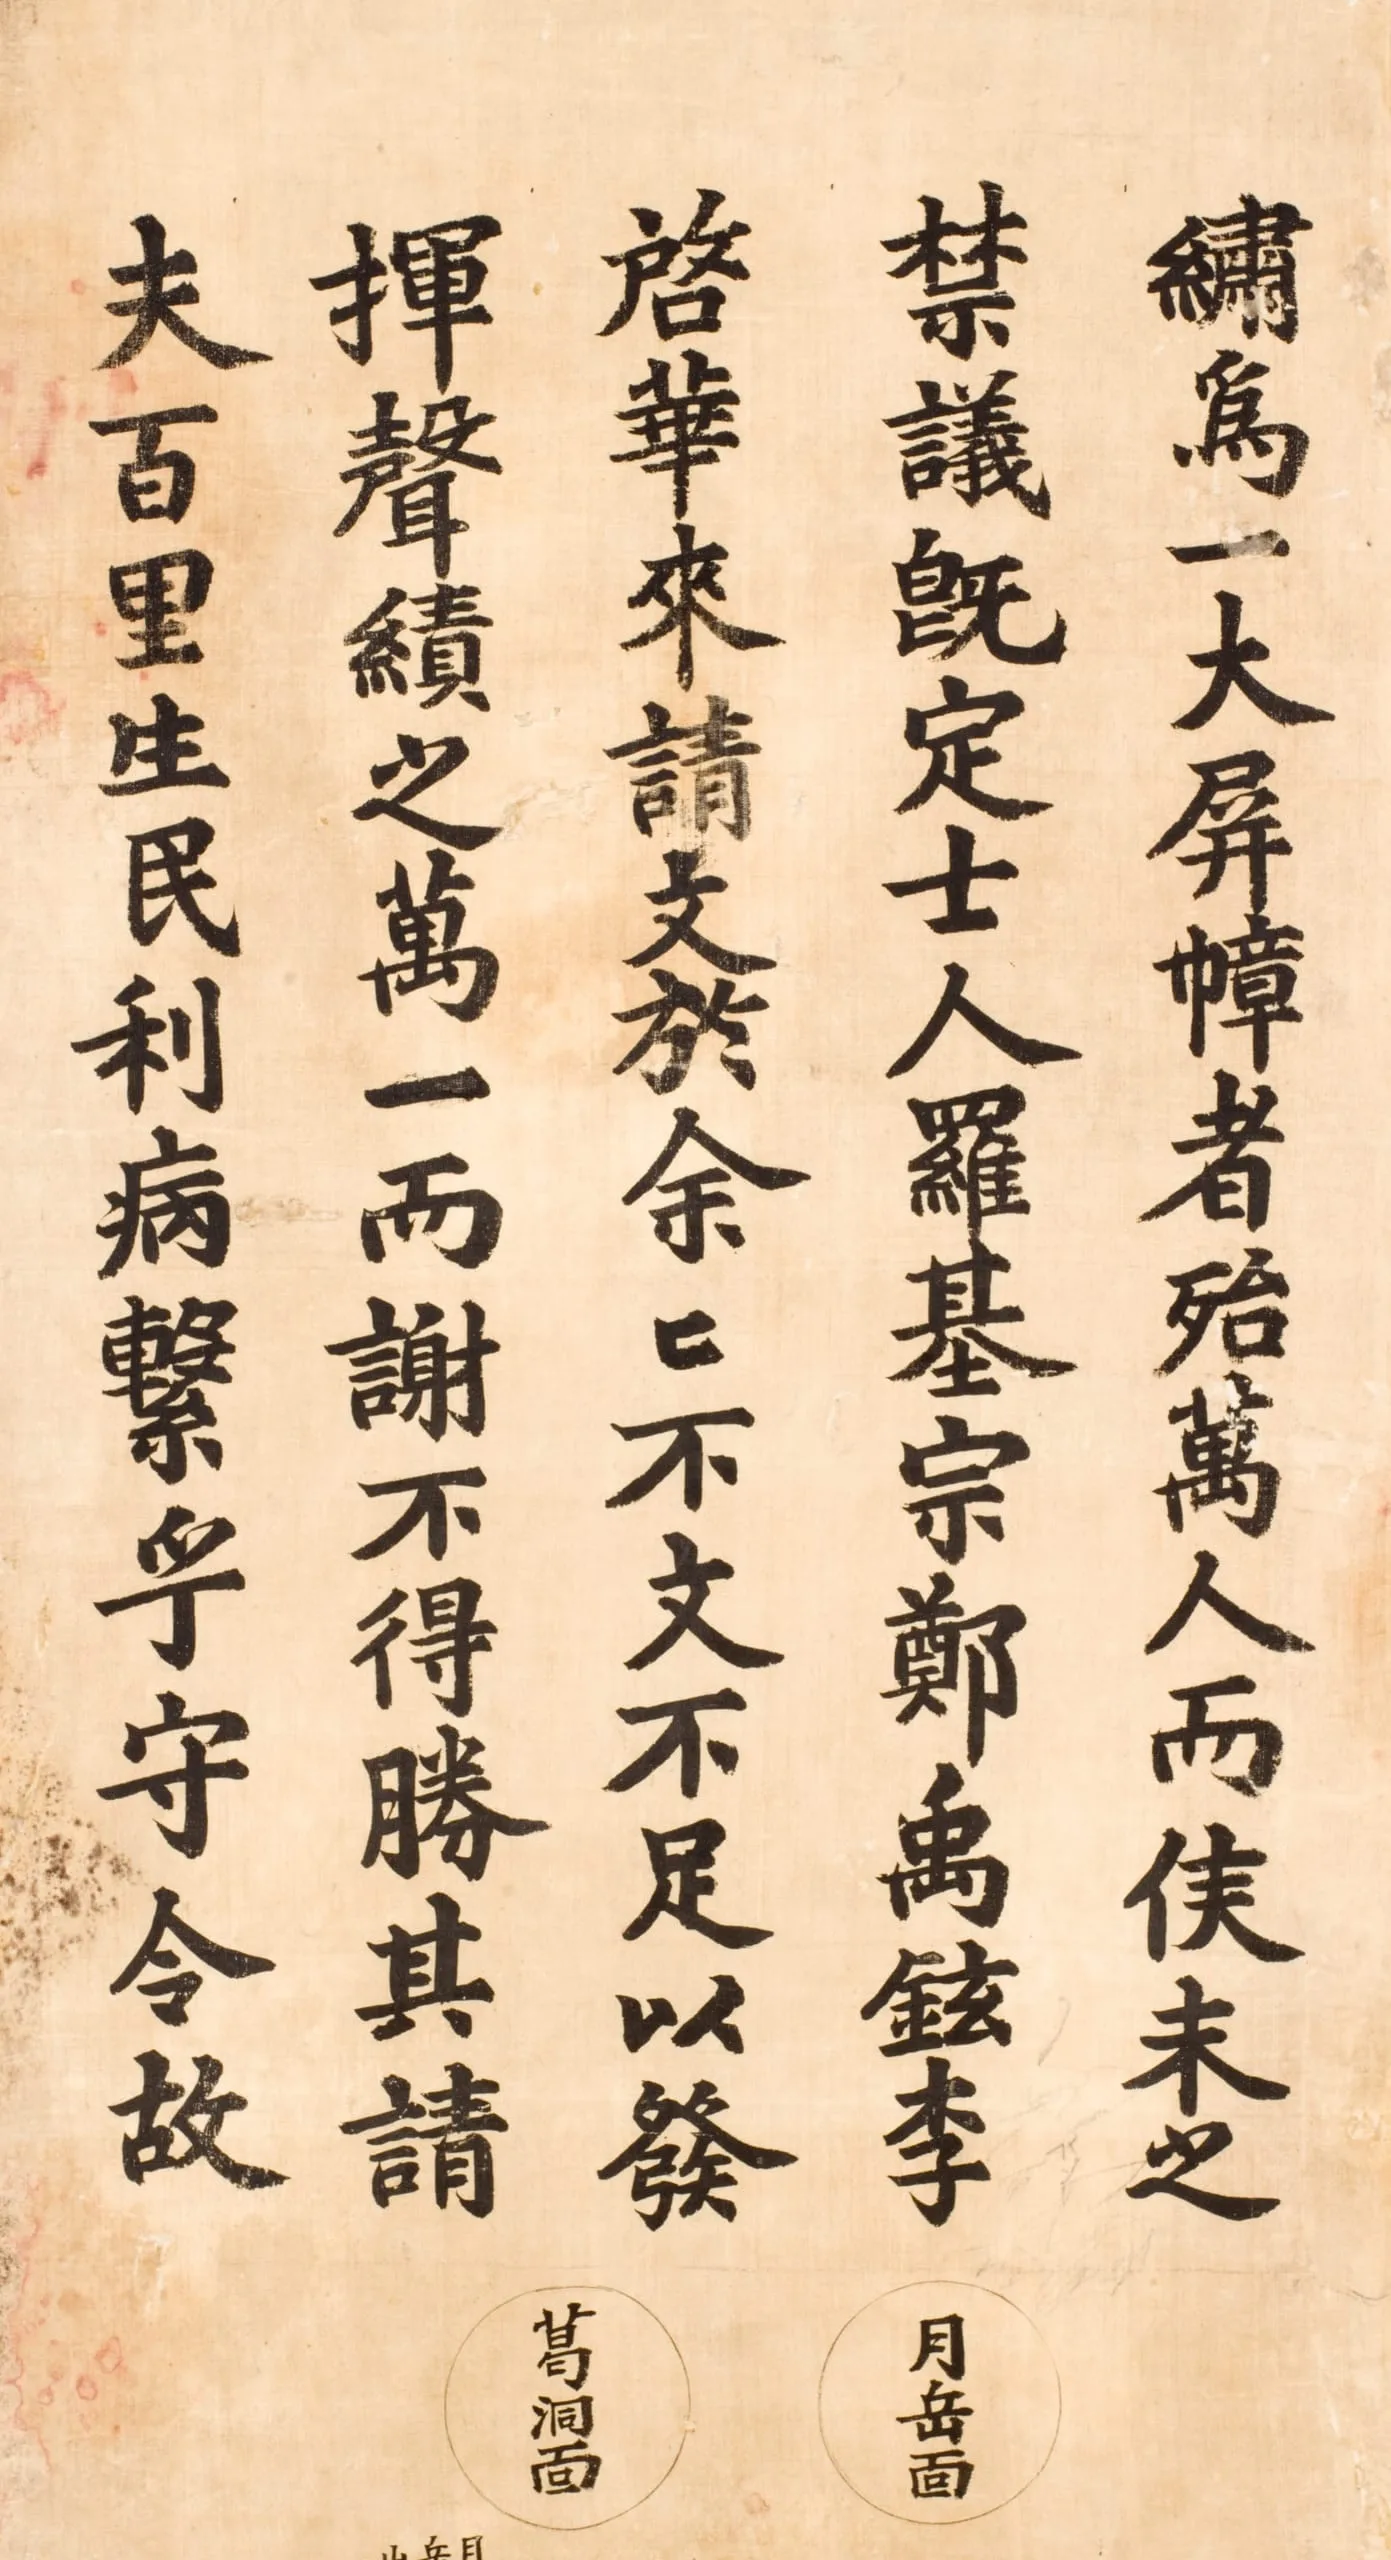 繡爲一大屛幛者殆萬人而侯未之
禁議旣定士人羅基宗鄭禹鉉李
啓華來請文於余〻不文不足以發
揮聲績之萬一而謝不得勝其請
夫百里生民利病繫乎守令故
月岳面
葛洞面